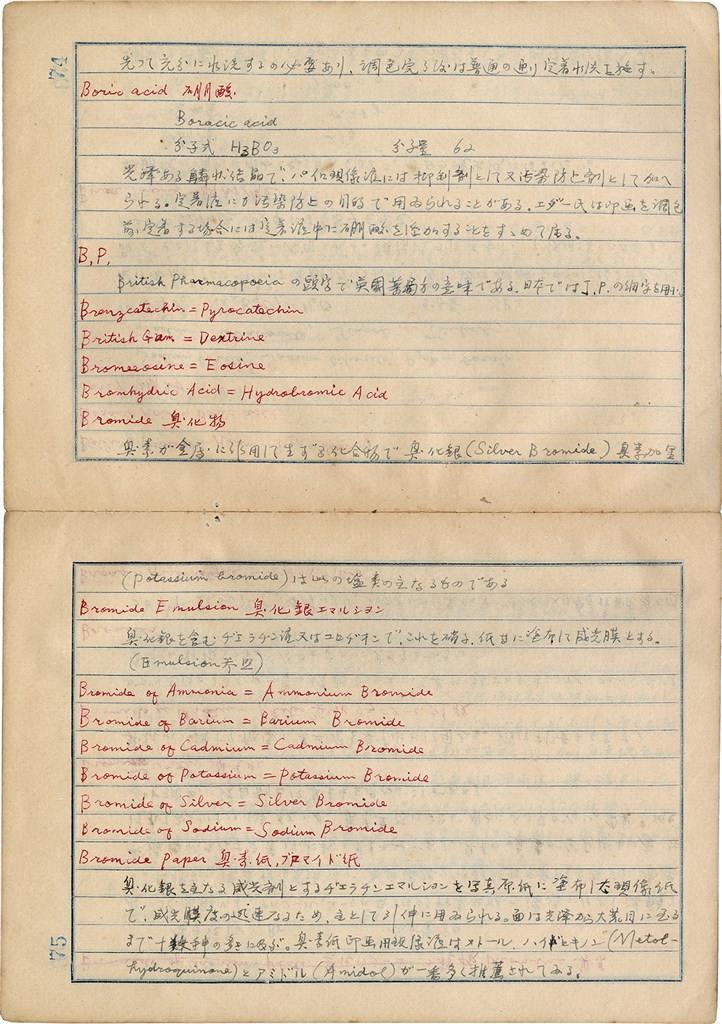 74
先づ充分に水洗するの必要あり、調色完了後は普通の通り定着水洗を施す。
Boric acid 硼酸
Boracic acid
分子式 H3BO3 分子量 62
光澤ある鱗状結晶で、パイロ現像液には抑制剤として又汚染防止剤として加へ
られる。定着液にも汚染防止の目的で用ゐられることがある。エダー氏は印画を調色
前定着する場合には定着液中に硼酸を添加することをすゝめて居る。
B.P.
British Pharmacopoeia の頭字で英國薬局方の意味である。日本では J.P. の
Brenzcatechin = Pyrocatechin
British Gum = Dextrine
Bromeosine = Eosine
Bromhydric Acid = Hydrobromic Acid
Bromide 臭化物
臭素が金属に作用して生ずる化合物で臭化銀 (Silver Bromide) 臭素加里
(Potassium bromide) は此の塩類の主なるものである
Bromide Emulsion 臭化銀エマルション
臭化銀を含むヂェラチン液又はコロヂオンで、これを硝子、紙等に塗布して感光膜とする。
(Emulsion 参照)
Bromide of Ammonia = Ammonium Bromide
Bromide of Barium = Barium Bromide
Bromide of Cadmium = Cadmium Bromide
Bromide of Potassium = Potassium Bromide
Bromide of Silver = Silver Bromide
Bromide of Sodium = Sodium Bromide
Bromide Paper 臭素紙, ブロマイド紙
臭化銀を主なる感光剤とするヂェラチンエマルションを写真原紙に塗布した現像紙
で、感光膜度の迅速なるため、主として引伸に用ゐられる。面は光澤から大荒目に至る
まで十数種の多きに及ぶ。臭素紙印画用現像液はメトール、ハイドキノン (Metol-
hydroquinone) とアミドル (Amidol) が一番多く推薦されてゐる。
75